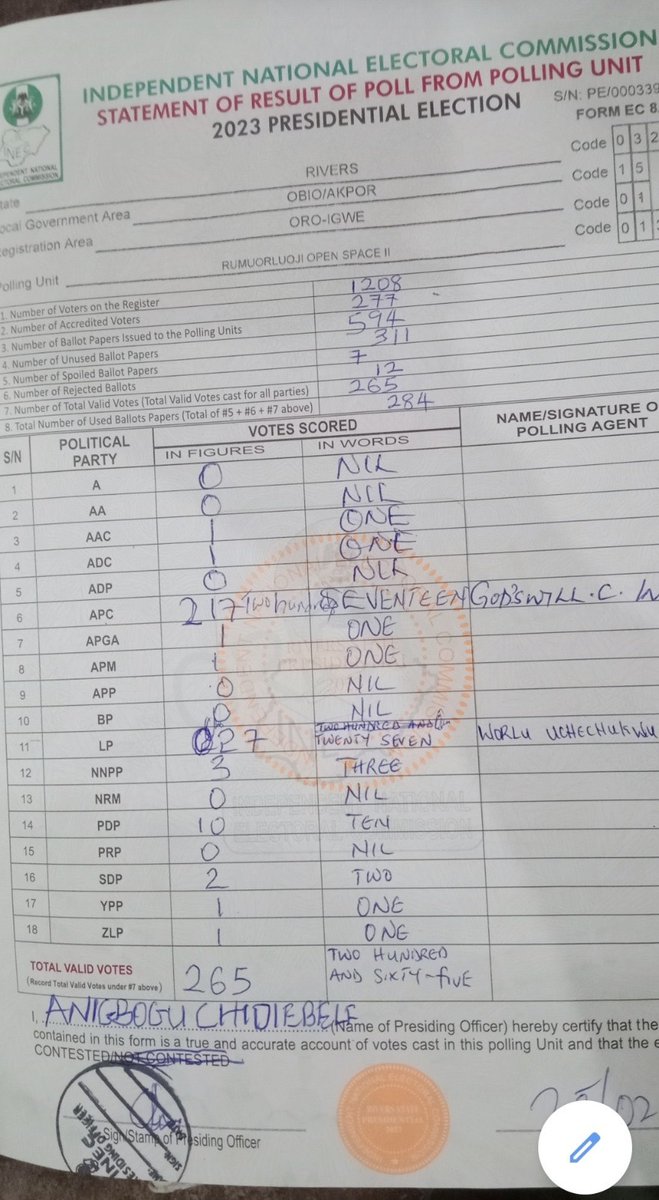 INDEPENDENT NATIONAL ELECTORAL COMMISSION
STATEMENT OF RESULT OF POLL FROM POLLING UNIT
2023 PRESIDENTIAL ELECTION
S/N: PE/000339
FORM EC 8
tate RIVERS Code 0 3 2
ocal Government Area OBIO/AKPOR Code 1 5
egistration Area ORO-IGWE Code 0 1
Polling Unit RUMUORLUOJI OPEN SPACE II Code 0 1
1. Number of Voters on the Register 1208
2. Number of Accredited Voters 277
3. Number of Ballot Papers Issued to the Polling Units 594
4. Number of Unused Ballot Papers 311
5. Number of Spoiled Ballot Papers 7
6. Number of Rejected Ballots 12
7. Number of Total Valid Votes (Total Valid Votes cast for all parties) 265
8. Total Number of Used Ballots Papers (Total of #5 + #6 + #7 above) 284
S/N POLITICAL PARTY VOTES SCORED NAME/SIGNATURE O
POLLING AGENT
IN FIGURES IN WORDS
1 A 0 NIL
2 AA 0 NIL
3 AAC 1 ONE
4 ADC 1 ONE
5 ADP 0 NIL
6 APC 217 Two hundred & SEVENTEEN GOD'SWILL.C.
7 APGA 1 ONE
8 APM 1 ONE
9 APP 0 NIL
10 BP 0 NIL
TWO HUNDRED AND
11 LP 027 TWENTY SEVEN WORLU UCHECHUKWU
12 NNPP 3 THREE
13 NRM 0 NIL
14 PDP 10 TEN
15 PRP 0 NIL
16 SDP 2 TWO
17 YPP 1 ONE
18 ZLP 1 ONE
TOTAL VALID VOTES 265 TWO HUNDRED
(Record Total Valid Votes under #7 above) AND SIXTY-FIVE
I, ANIGBOGU CHIDIEBELE (Name of Presiding Officer) hereby certify that the
contained in this form is a true and accurate account of votes cast in this polling Unit and that the e
CONTESTED/NOT CONTESTED
25/02
Sign/Stamp of Presiding Officer